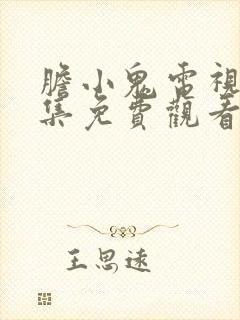 膽小鬼電視
集免費觀看
王思遠